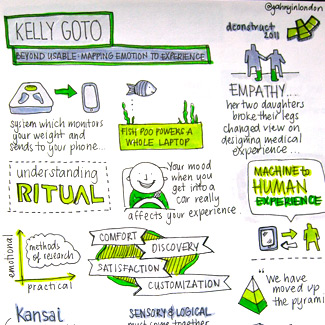 @gahyinlondon
KELLY GOTO
BEYOND USABLE-MAPPING EMOTION TO EXPERIENCE
dconstruct
2011
system which monitors
your weight and
sends to your phone...
FISH POO POWERS A
WHOLE LAPTOP
EMPATHY...
her two daughters
broke their legs
changed view on
designing medical
experience...
understanding
RITUAL
Your mood
when you
get into a
car really
affects your experience
MACHINE to
HUMAN
EXPERIENCE
emotional
methods
of research
practical
COMFORT
DISCOVERY
SATISFACTION
CUSTOMIZATION
"We have
moved up
the pyrami
Kansai
SENSORY & LOGICAL
must come together